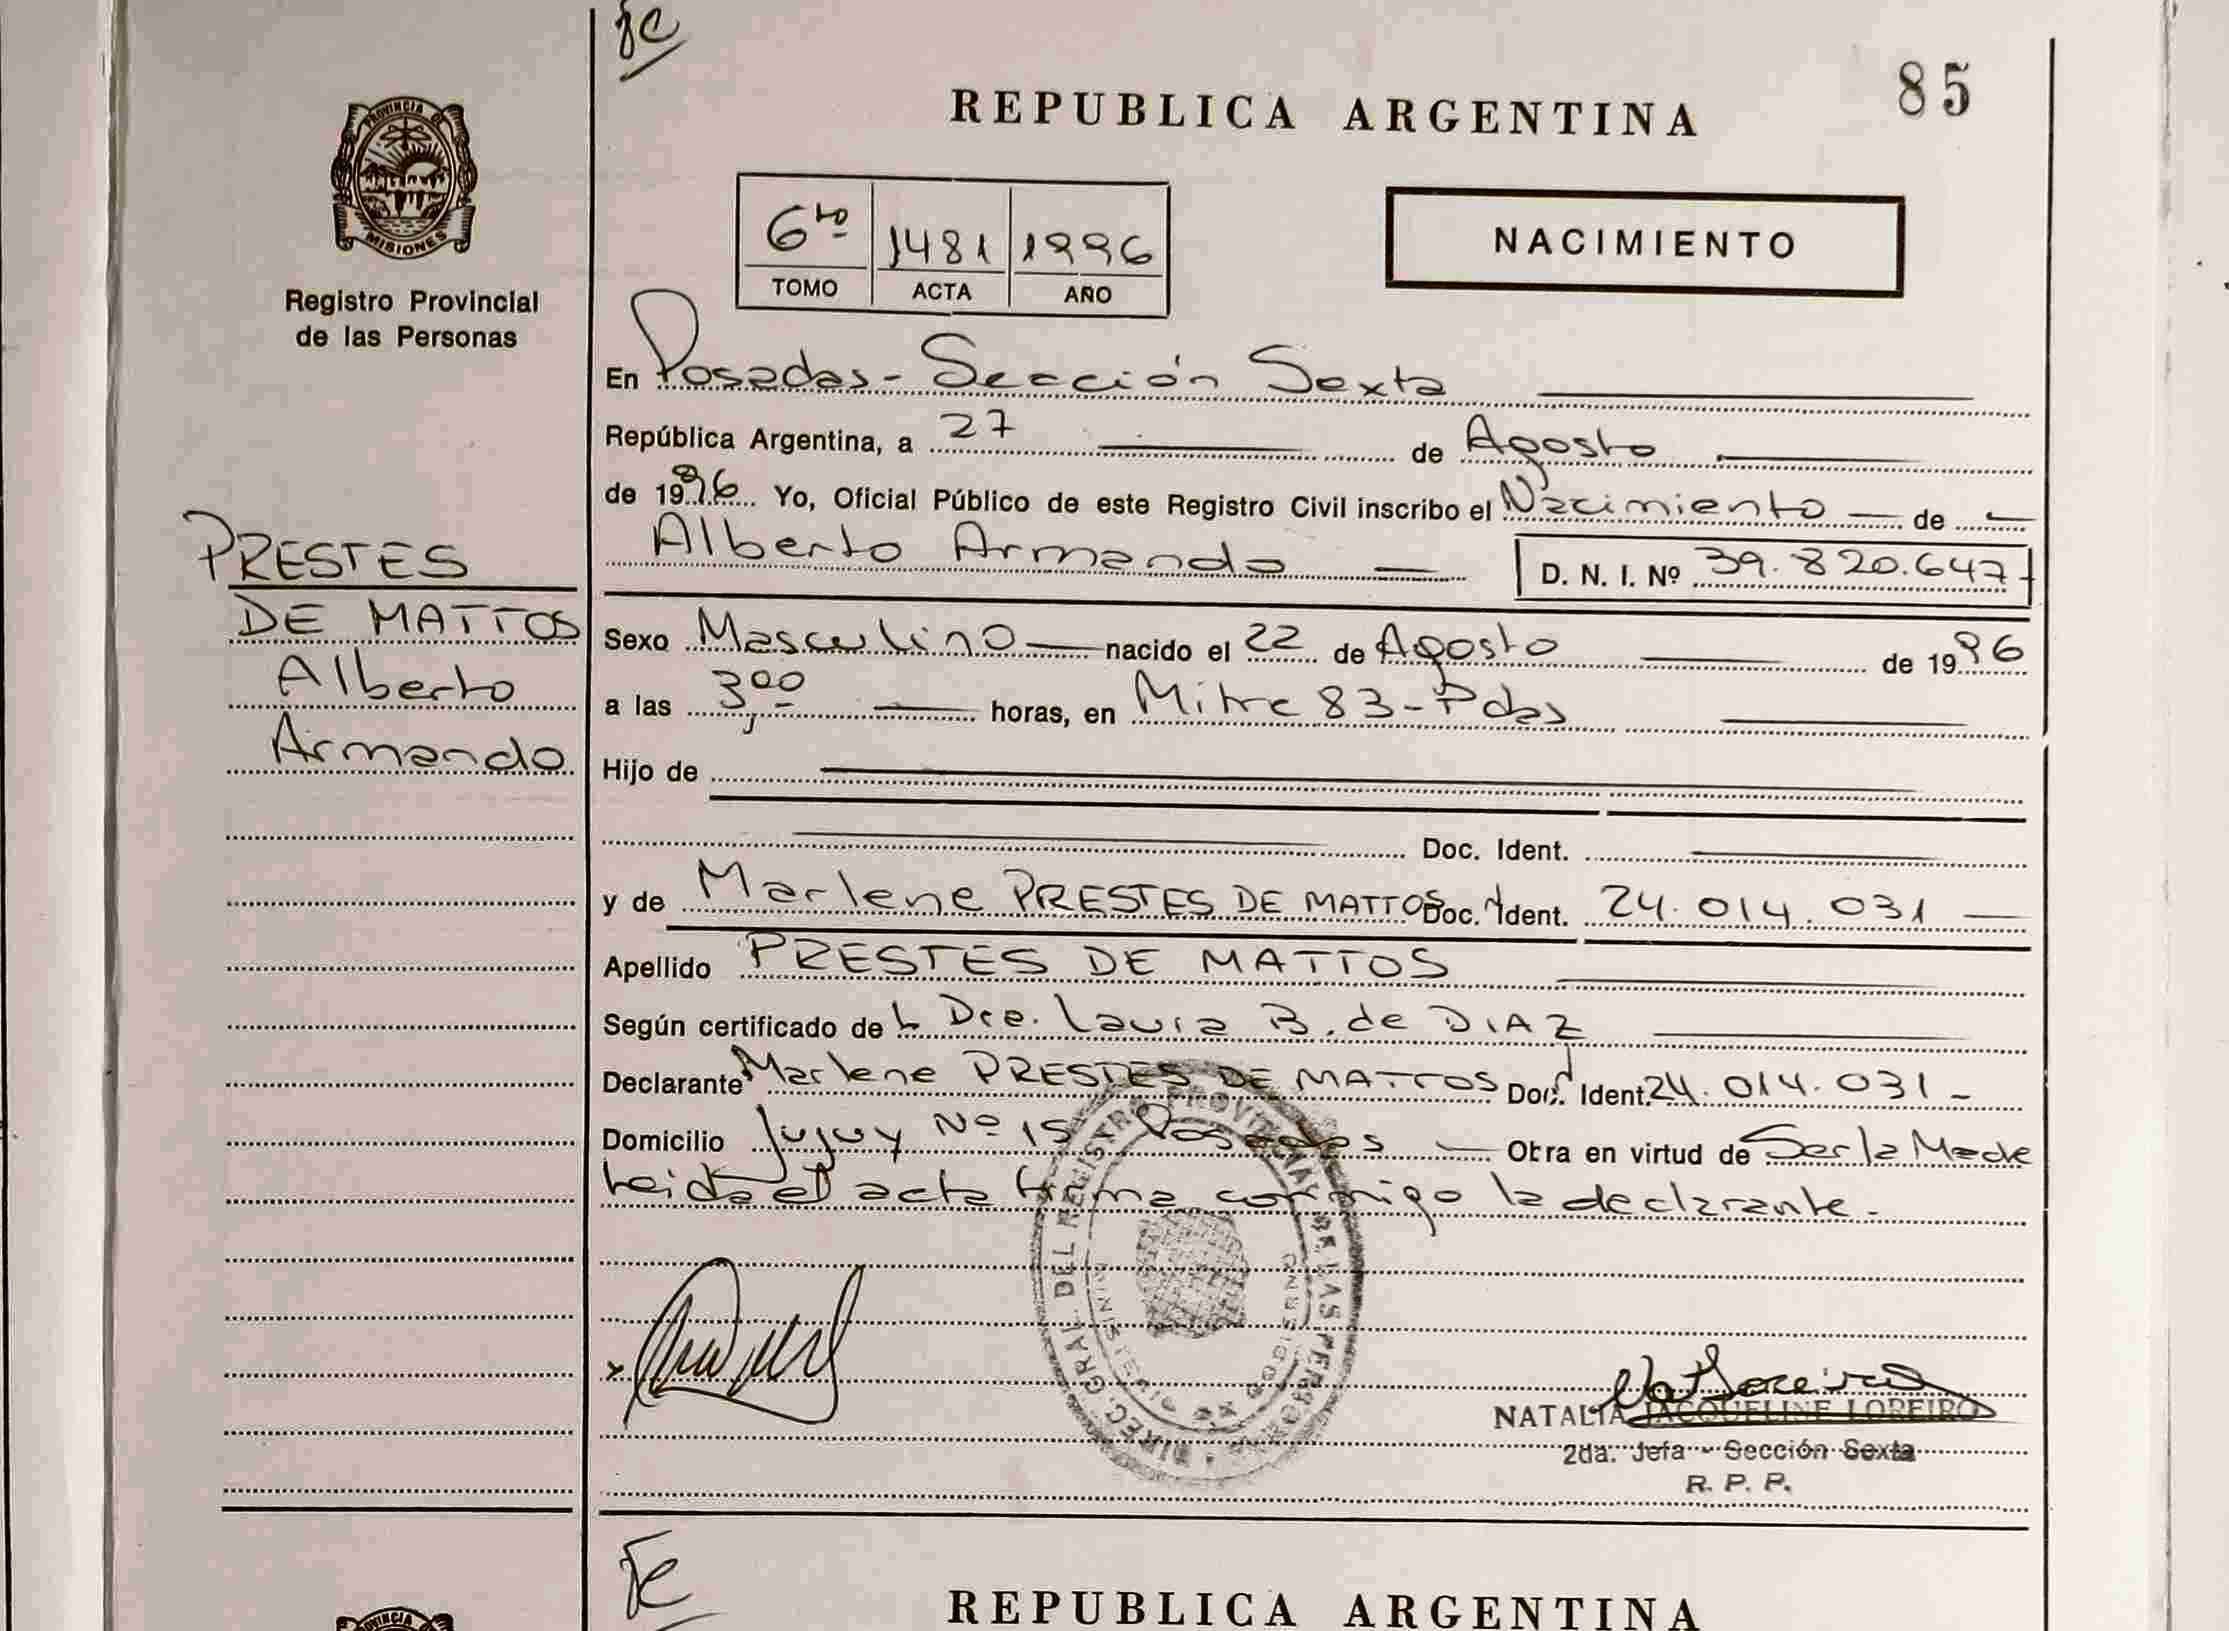 REPUBLICA ARGENTINA
85
PROVINCIA DE
MISIONES
Registro Provincial
de las Personas
6to 1481 1996
TOMO ACTA AÑO
NACIMIENTO
PRESTES
DE MATTOS
Alberto
Armando
En Posadas - Sección Sexta
República Argentina, a 27 de Agosto
de 1996 Yo, Oficial Público de este Registro Civil inscribo el Nacimiento de
Alberto Armando D. N. I. Nº 39.820.647
Sexo Masculino nacido el 22 de Agosto de 1996
a las 3,00 horas, en Mitre 83 - Pdas
Hijo de
Doc. Ident.
y de Marlene PRESTES DE MATTOS Doc. Ident. 24.014.031
Apellido PRESTES DE MATTOS
Según certificado de Laura B. de DIAZ
Declarante Marlene PRESTES DE MATTOS Doc. Ident. 24.014.031
Domicilio Jujuy Nº 15 Posadas Obra en virtud de Ser la Madre
Leida el acta firma conmigo la declarante.
DIREC. GRAL. DEL REGISTRO PROVINCIAL DE LAS PERSONAS
NATALIA JACQUELINE LOREIRO
2da. Jefa - Sección Sexta
R. P. P.
REPUBLICA ARGENTINA
PROVINCIA